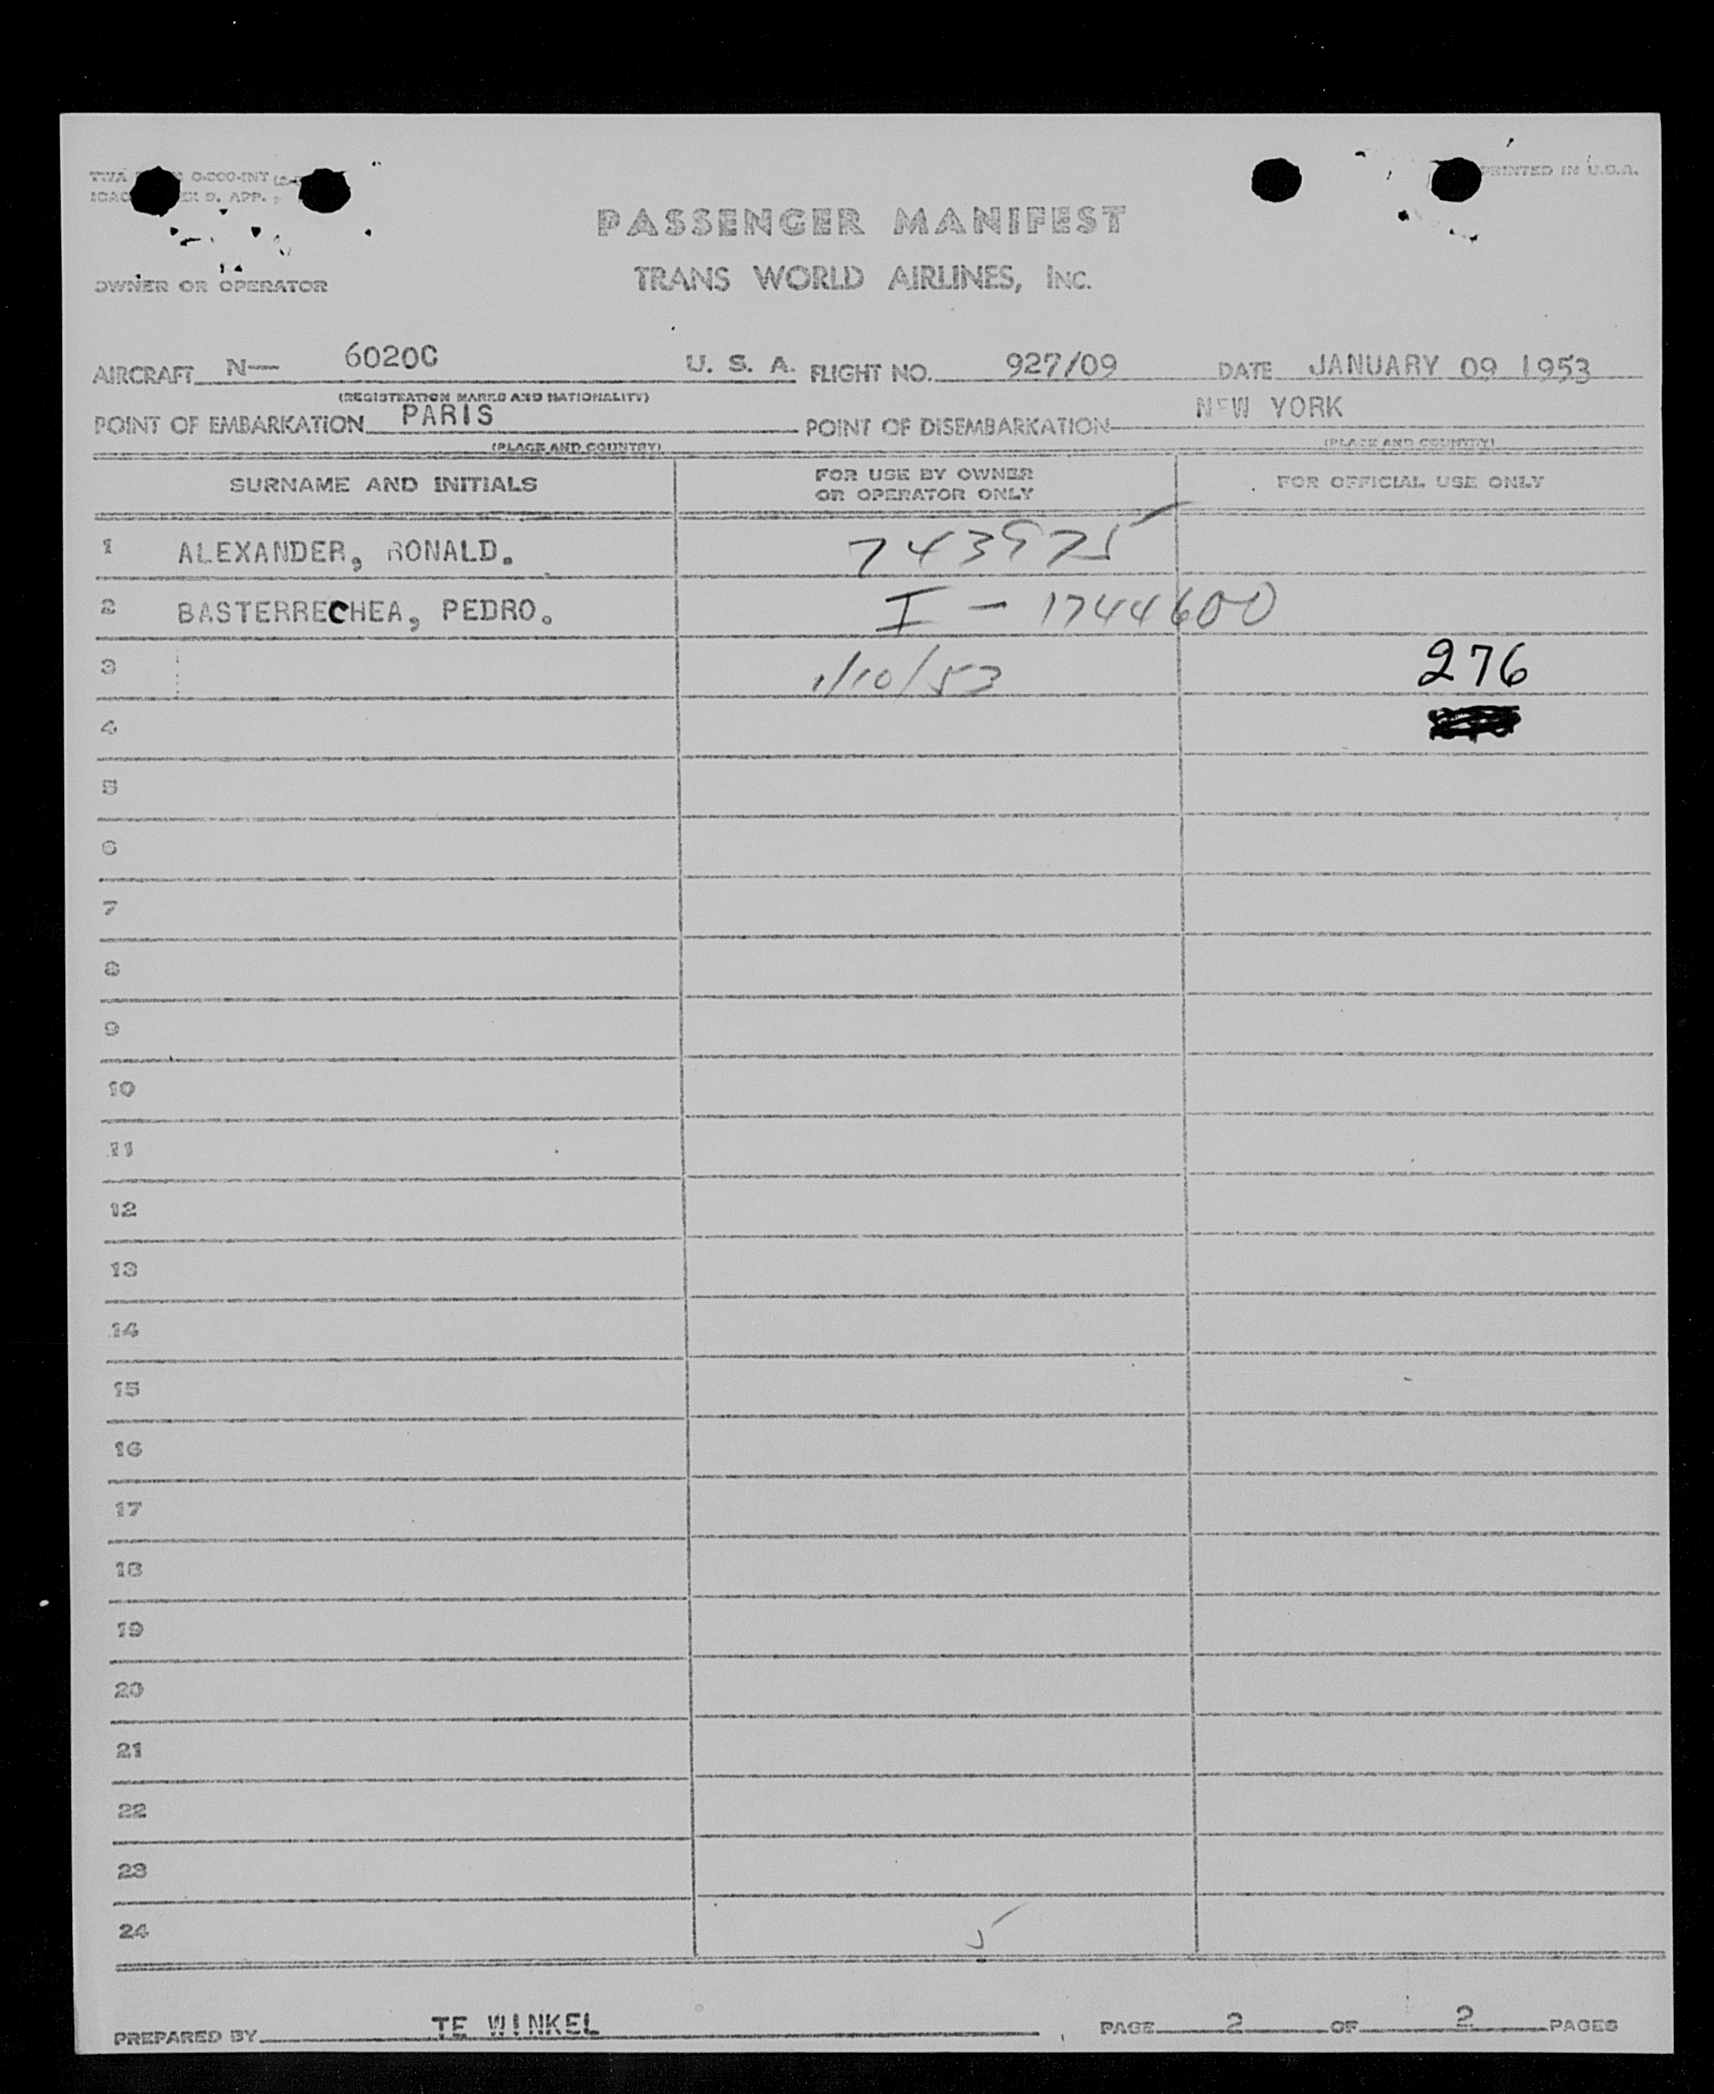 PRINTED IN U.S.A.
PASSENGER MANIFEST
TRANS WORLD AIRLINES, INC.
OWNER OR OPERATOR
AIRCRAFT N— 6020C U. S. A. FLIGHT NO. 927/09 DATE JANUARY 09 1953
(REGISTRATION MARKS AND NATIONALITY)
POINT OF EMBARKATION PARIS POINT OF DISEMBARKATION NEW YORK
(PLACE AND COUNTRY) (PLACE AND COUNTRY)
SURNAME AND INITIALS FOR USE BY OWNER OR OPERATOR ONLY FOR OFFICIAL USE ONLY
1 ALEXANDER, RONALD. 743975
2 BASTERRECHEA, PEDRO. I - 1744600
3 1/10/53 276
4
5
6
7
8
9
10
11
12
13
14
15
16
17
18
19
20
21
22
23
24
PREPARED BY TE WINKEL PAGE 2 OF 2 PAGES